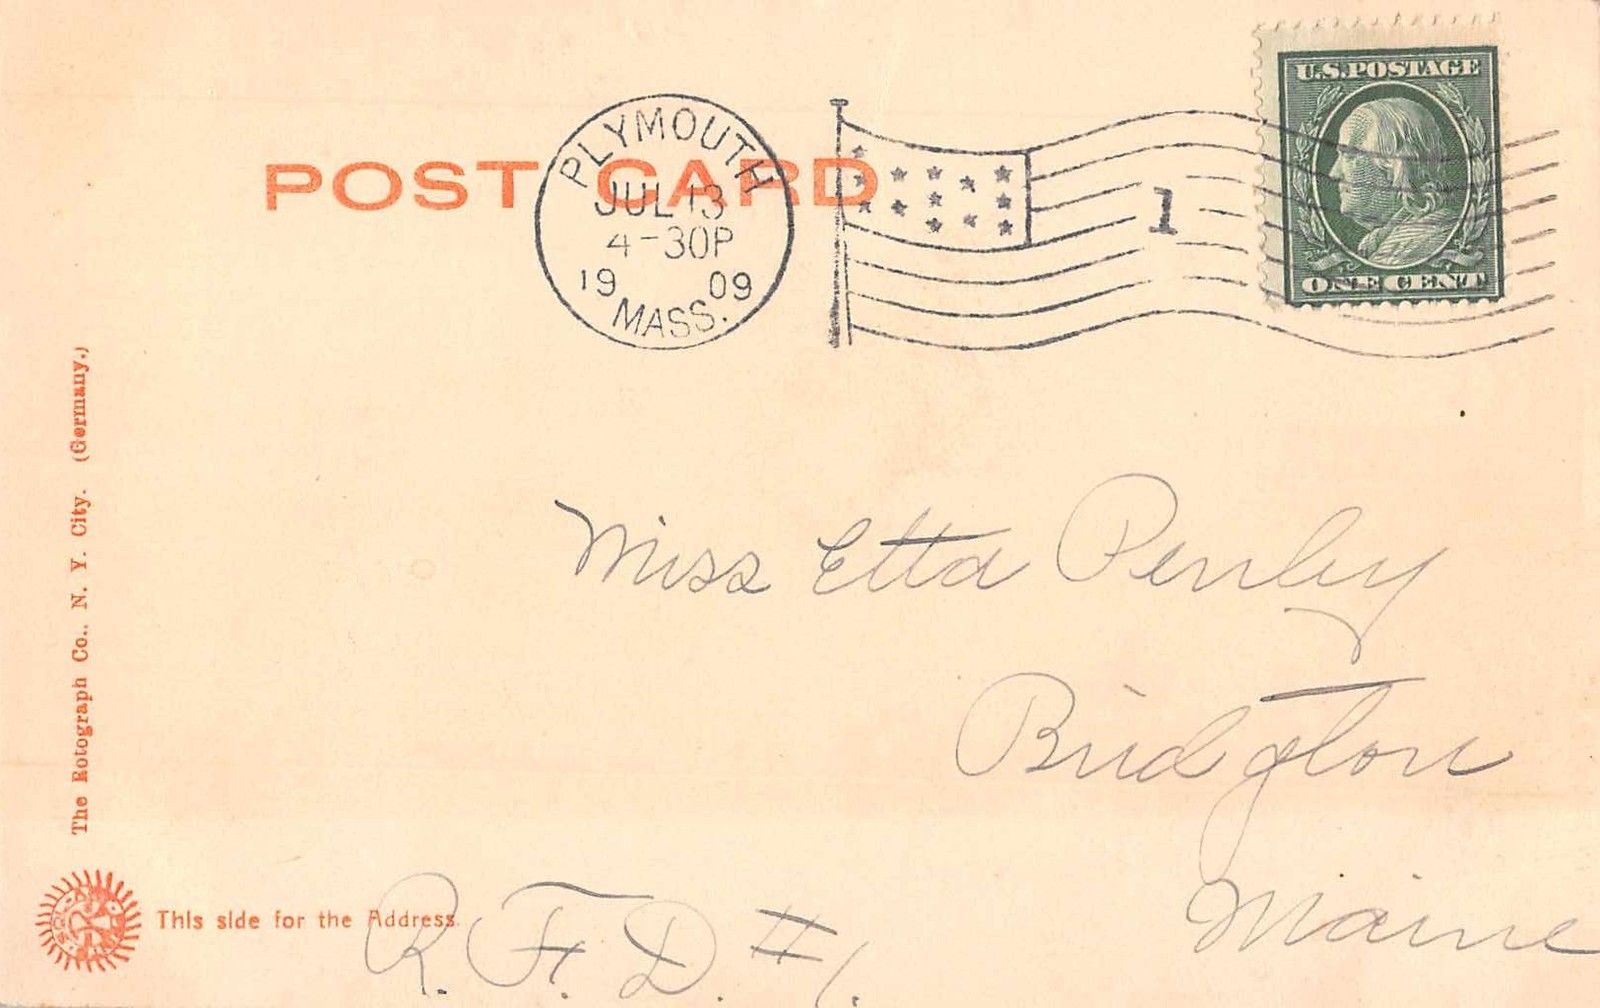 POST CARD
PLYMOUTH
JUL 13
4-30P
19 09
MASS.
1
U.S. POSTAGE
ONE CENT
Miss Etta Penley
Bridgton
Maine
R.F.D. #1.
This side for the Address.
The Rotograph Co., N. Y. City. (Germany.)